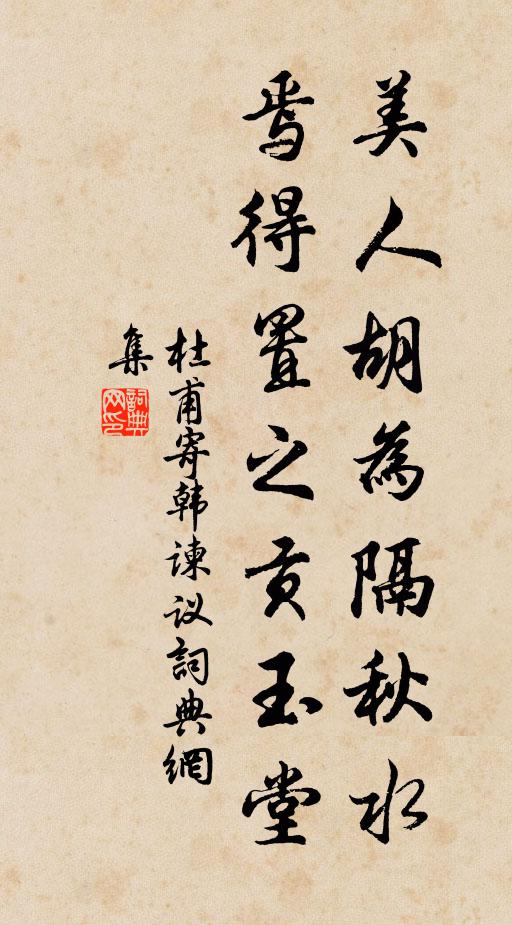 美人胡為隔秋水
焉得置之贡玉堂
杜甫寄韩谏议詞典網
集
詞典网印